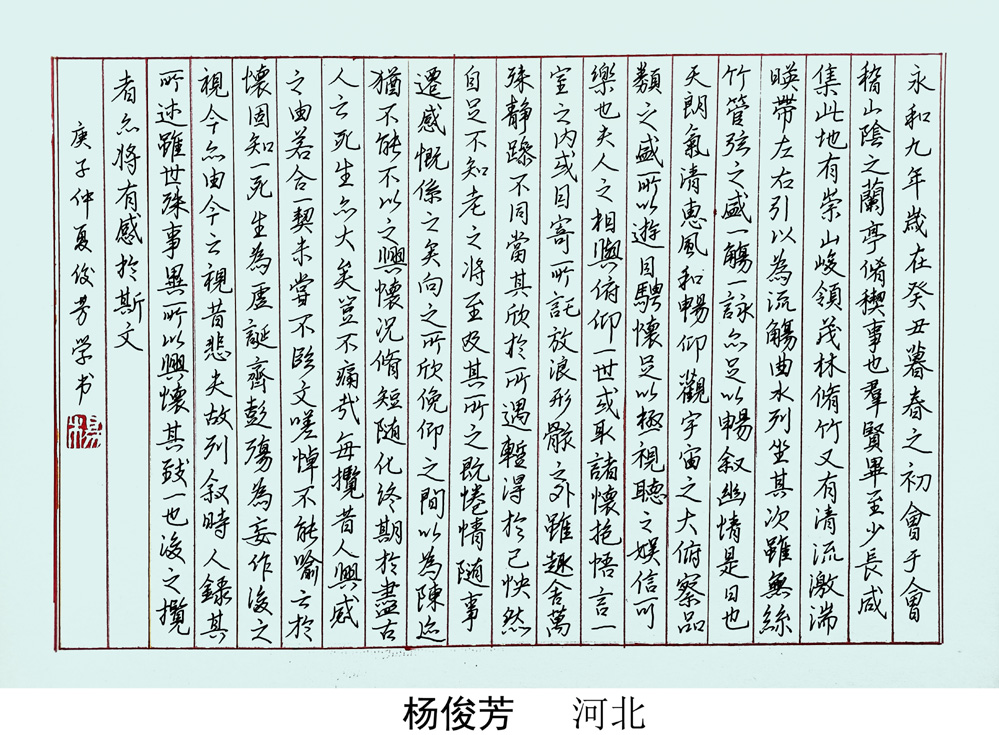 永和九年歲在癸丑暮春之初會于會
稽山陰之蘭亭脩禊事也羣賢畢至少長咸
集此地有崇山峻領茂林脩竹又有清流激湍
暎帶左右引以為流觴曲水列坐其次雖無絲
竹管弦之盛一觴一詠亦足以暢叙幽情是日也
天朗氣清惠風和暢仰觀宇宙之大俯察品
類之盛所以遊目騁懷足以極視聽之娛信可
樂也夫人之相與俯仰一世或取諸懷抱悟言一
室之內或因寄所託放浪形骸之外雖趣舍萬
殊静躁不同當其欣於所遇暫得於己怏然
自足不知老之將至及其所之既惓情随事
遷感慨係之矣向之所欣俛仰之間以為陳迹
猶不能不以之興懷况脩短随化终期於盡古
人云死生亦大矣豈不痛哉每攬昔人興感
之由若合一契未嘗不臨文嗟悼不能喻之於
懷固知一死生為虛誕齊彭殤為妄作後之
視今亦由今之視昔悲夫故列叙時人錄其
所述雖世殊事異所以興懷其致一也後之攬
者亦將有感於斯文
庚子仲夏俊芳学书
楊
杨俊芳 河北